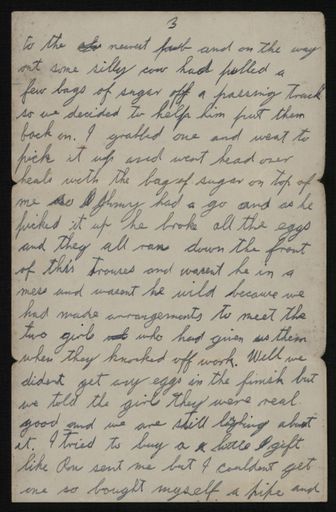 3
to the newest pub and on the way
out some silly cow had pulled a
few bags of sugar off a passing truck
so we decided to help him put them
back on. I grabbed one and went to
pick it up and went head over
heals with the bag of sugar on top of
me so Jhnny had a go and as he
picked it up he broke all the eggs
and they all ran down the front
of this trouses and wasent he in a
mess and wasent he wild because we
had made arrangements to meet the
two girls who had given us them
when they knocked off work. Well we
dident get any eggs in the finish but
we told the girls they were real
good and we are still lighing about
it. I tried to buy a little gift
like Ron sent me but I couldent get
one so bought myself a pipe and